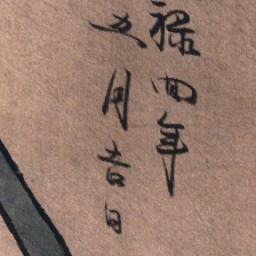 禄四年
五月吉日